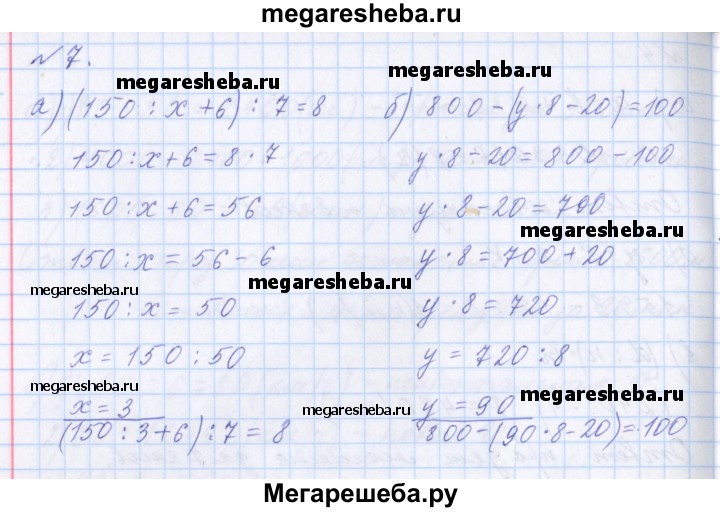 megaresheba.ru
№ 7.
megaresheba.ru
megaresheba.ru
а) (150 : x + 6) : 7 = 8
150 : x + 6 = 8 · 7
150 : x + 6 = 56
150 : x = 56 - 6
150 : x = 50
x = 150 : 50
x = 3
(150 : 3 + 6) : 7 = 8
б) 800 - (y · 8 - 20) = 100
y · 8 - 20 = 800 - 100
y · 8 - 20 = 700
megaresheba.ru
y · 8 = 700 + 20
y · 8 = 720
y = 720 : 8
y = 90
800 - (90 · 8 - 20) = 100
megaresheba.ru
megaresheba.ru
megaresheba.ru
megaresheba.ru
megaresheba.ru
megaresheba.ru
Мегарешеба.ру